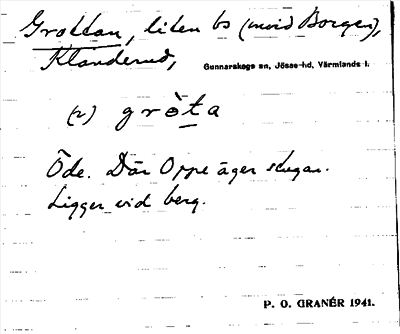 Grottan, liten bs (invid Borgen),
Klanderud,
Gunnarskogs sn, Jösse-hd, Värmlands l.
(2) gròta
Öde. Där Oppe äger stugan.
Ligger vid berg.
P. O. GRANÉR 1941.